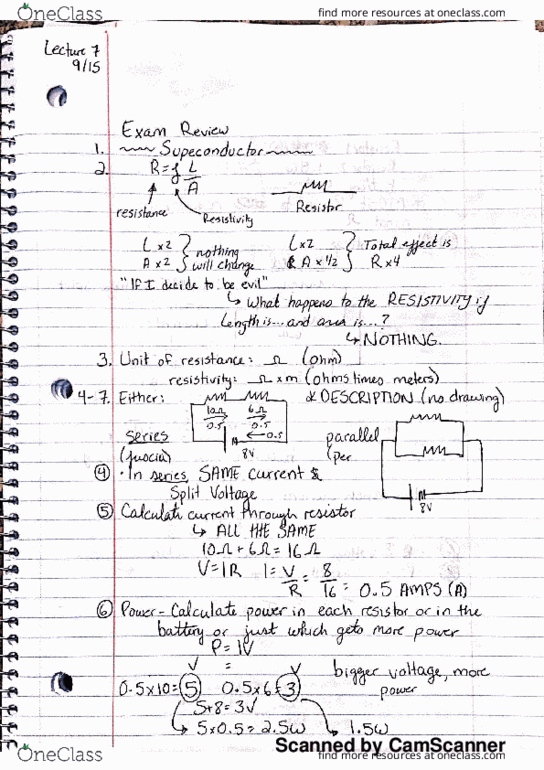 OneClass find more resources at oneclass.com
Lecture 7
9/15
Exam Review
1. Supeconductor
2. R = ρ L/A
resistance Resistivity Resistor
L x2 } nothing L x2 } Total effect is
A x2 } will change & A x 1/2 } R x 4
"IF I decide to be evil"
↳ What happens to the RESISTIVITY if
length is... and area is...?
↳ NOTHING.
3. Unit of resistance: Ω (ohm)
resistivity: Ω x m (ohms times meters)
4-7. Either: * DESCRIPTION (no drawing)
10Ω 6Ω
0.5 0.5
←0.5
8V
series parallel
(per
8V
④ · In series, SAME current &
Split Voltage
⑤ Calculate current through resistor
↳ ALL THE SAME
10Ω + 6Ω = 16Ω
V = IR I = V/R = 8/16 = 0.5 AMPS (A)
⑥ Power - Calculate power in each resistor or in the
battery or just which gets more power
P = IV
V = V bigger voltage, more
0.5x10=5 0.5x6=3 power
5+8=3V
5x0.5=2.5w 1.5w
Scanned by CamScanner
OneClass find more resources at oneclass.com